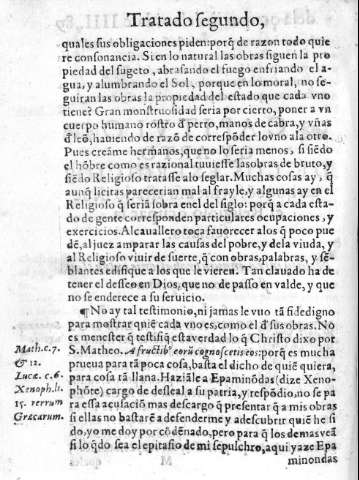 Tratado segundo,
quales sus obligaciones piden: porq̃ de razon todo quie
re consonancia. Si en lo natural las obras siguen la pro
piedad del sugeto, abrasando el fuego enfriando el a-
gua, y alumbrando el Sol, porque en lo moral, no se-
guiran las obras la propiedad del estado que cada vno
tiene? Gran monstruosidad seria por cierto, poner a vn
cuerpo humano rostro d̃ perro, manos de cabra, y vñas
d̃ leõ, hauiendo de razõ de correspõder lo vno a lo otro.
Pues creãme hermanos, que no lo seria menos, si siẽdo
el hõbre como es razional tuuiesse las obras de bruto, y
siẽdo Religioso tratasse alo seglar. Muchas cosas ay, q̃
aunq̃ licitas parecerian mal al frayle, y algunas ay en el
Religioso q̃ seriã sobra en el del siglo: porq̃ a cada esta-
do de gente corresponden particulares ocupaciones, y
exercicios. Al cauallero toca fauorecer a los q̃ poco pue
dẽ, al juez amparar las causas del pobre, y dela viuda, y
al Religioso viuir de suerte, q̃ con obras, palabras, y sẽ-
blantes edifique a los que le vieren. Tan clauado ha de
tener el desseo en Dios, que no de passo en valde, y que
no se enderece a su seruicio.
¶ No ay tal testimonio, ni jamas le vuo tã fidedigno
para mostrar quiẽ cada vno es, como el d̃ sus obras. No
es menester q̃ testifiq̃ esta verdad lo q̃ Christo dixo por
Math. c. 7. S. Matheo. A fructib⁹ eorũ cognoscetis eos: porq̃ es mucha
& 12. prueua para tã poca cosa, basta el dicho de quiẽ quiera,
Lucæ. c. 6. para cosa tã llana. Haziãle a Epaminõdas (dize Xeno-
Xenoph. li. phõte) cargo de desleal a su patria, y respõdio, no se pa
15. rerum ra essa acusaciõ mas descargo q̃ presentar q̃ a mis obras
Græcarum. si ellas no bastarẽ a desenderme y adescubrir quiẽ he si
do, yo me doy por cõdenado, pero para q̃ los demas vea
si lo q̃do sea el epitafio de mi sepulchro, aqui yaze Epa
M minondas